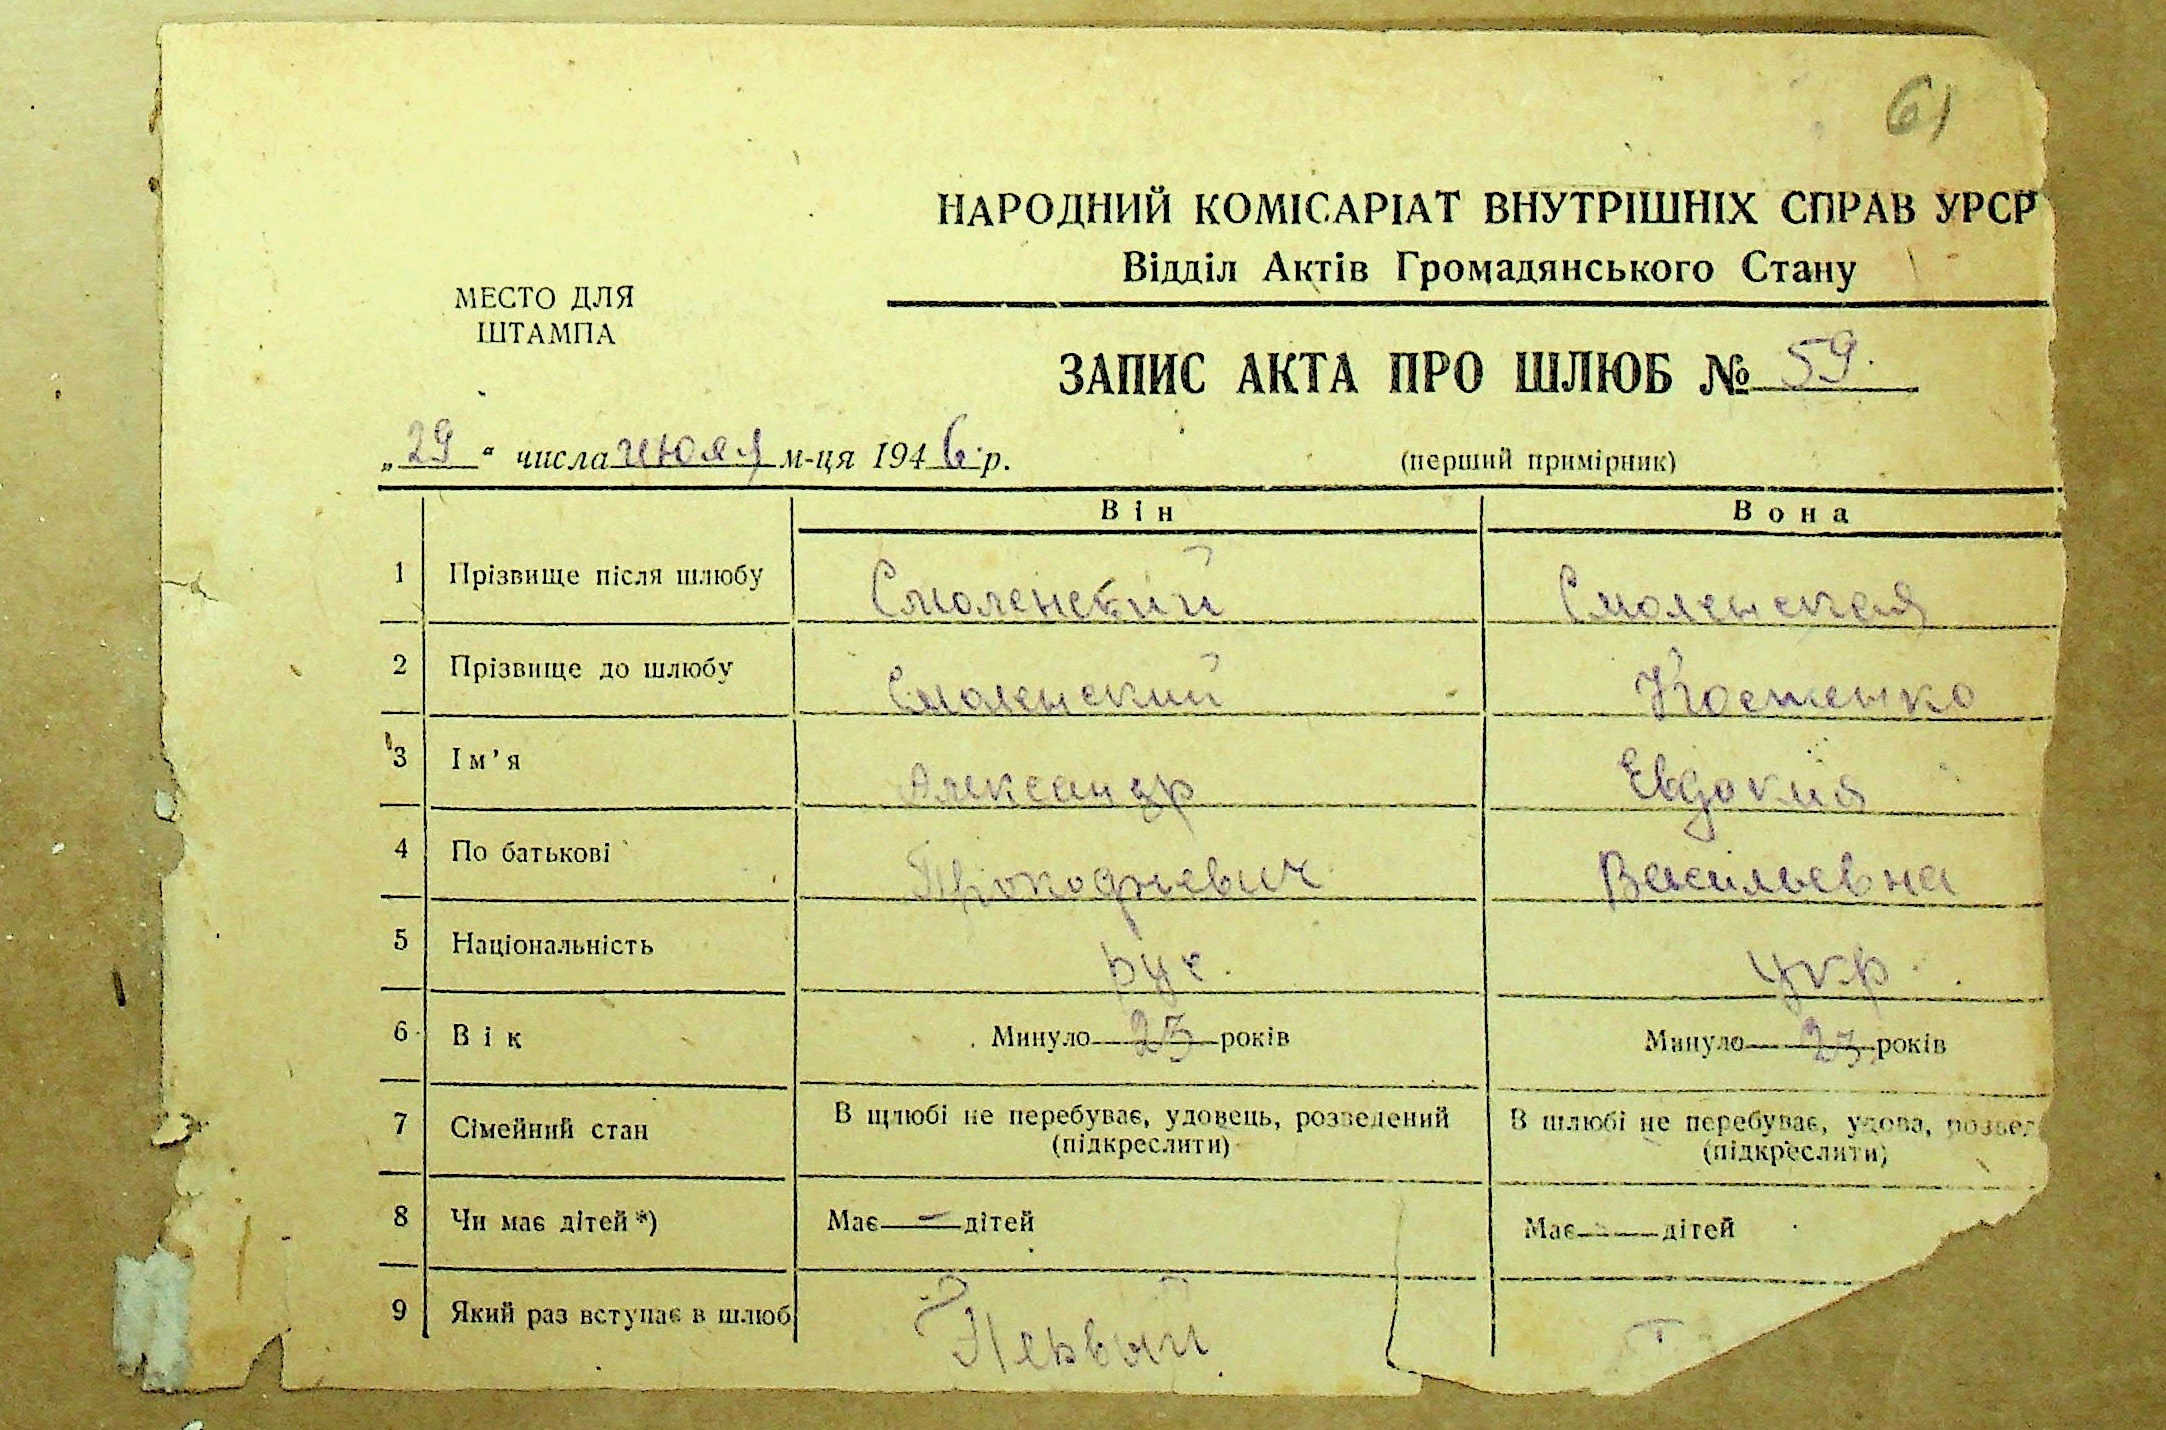 61
НАРОДНИЙ КОМІСАРІАТ ВНУТРІШНІХ СПРАВ УРСР
Відділ Актів Громадянського Стану
МЕСТО ДЛЯ
ШТАМПА
ЗАПИС АКТА ПРО ШЛЮБ № 59.
„29“ числа июля м-ця 1946 р.
(перший примірник)
Він Вона
1 Прізвище після шлюбу Смоленский Смоленская
2 Прізвище до шлюбу Смоленский Костенко
3 Ім'я Александр Евдокия
4 По батькові Прокофьевич Васильевна
5 Національність рус. укр.
6 Вік Минуло 23 років Минуло 23 років
7 Сімейний стан В шлюбі не перебуває, удовець, розведений В шлюбі не перебуває, удова, розвед
(підкреслити) (підкреслити)
8 Чи має дітей*) Має — дітей Має — дітей
9 Який раз вступає в шлюб Первый